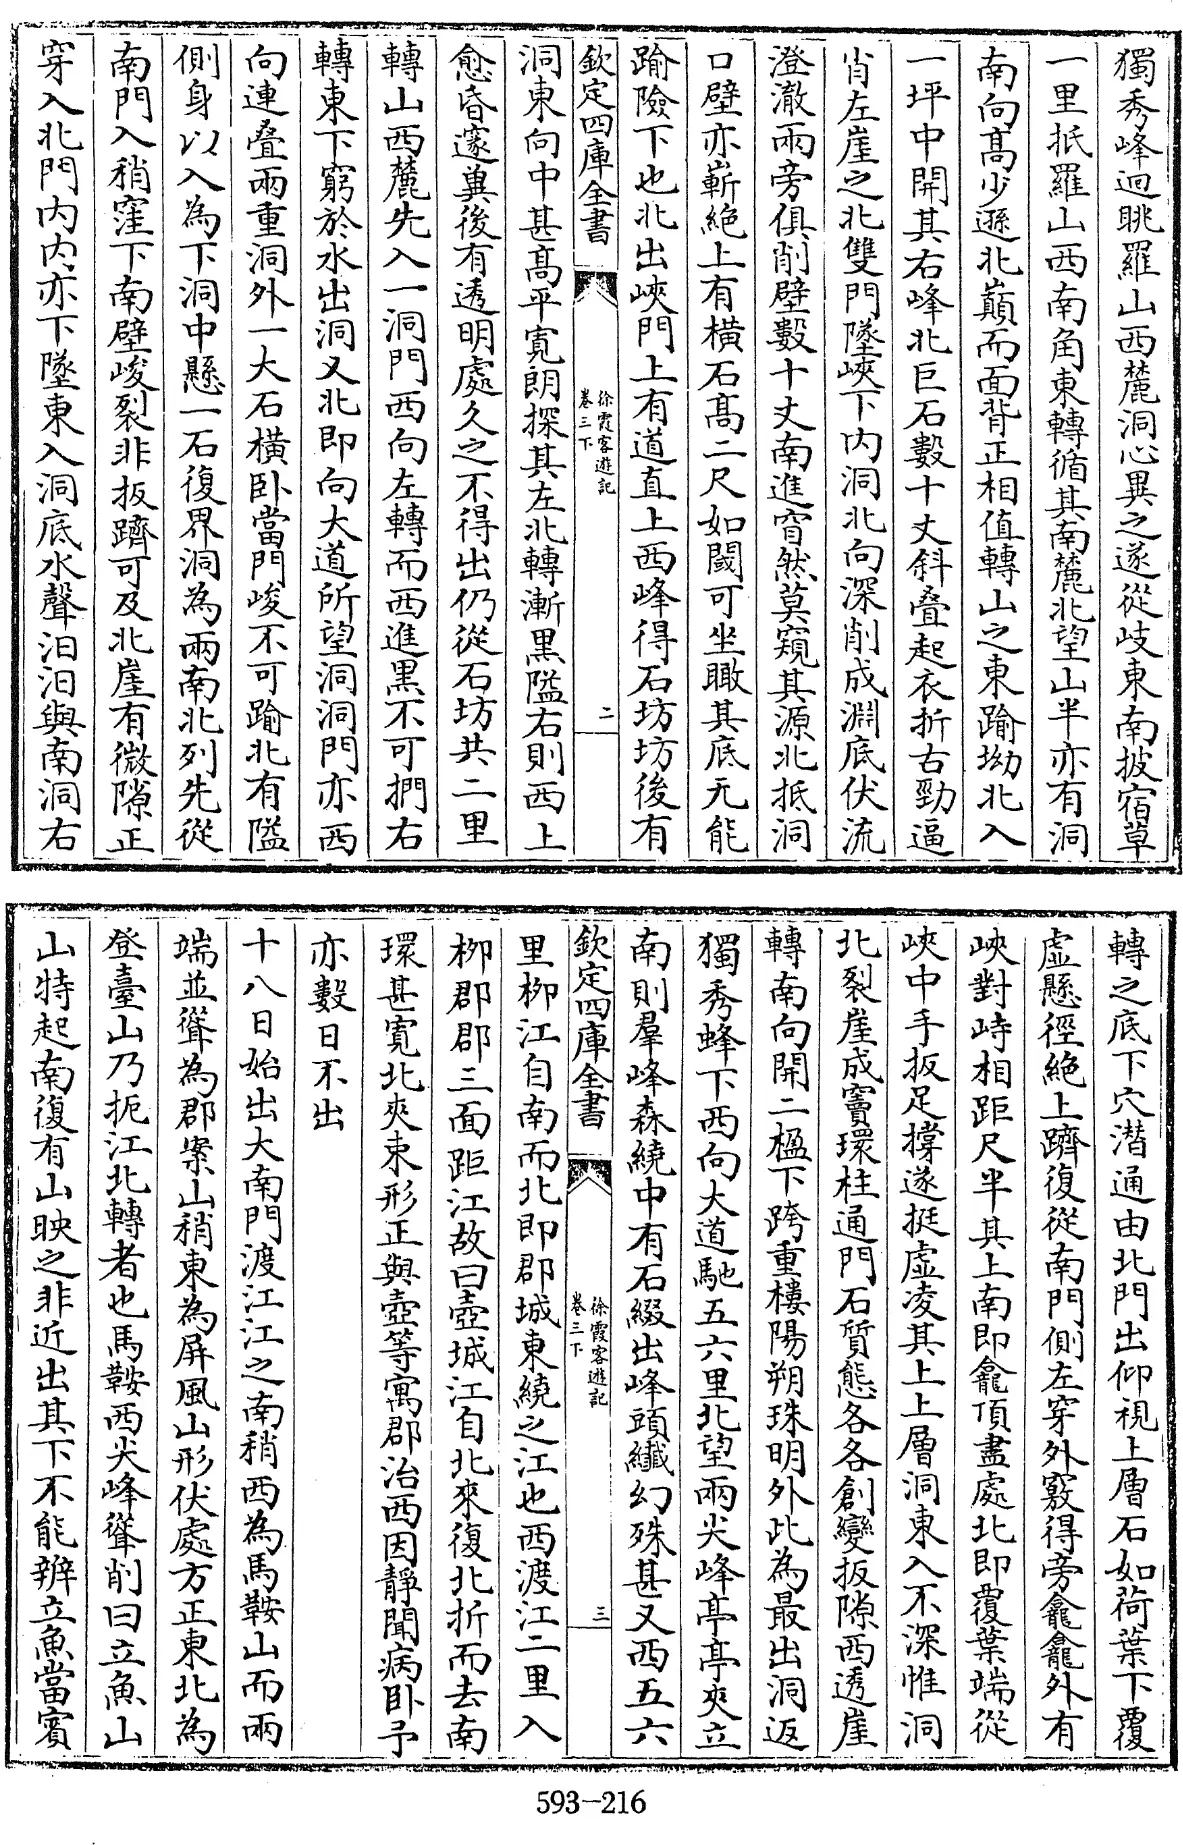 獨秀峰迴眺羅山西麓洞心異之遂從岐東南披宿草
一里抵羅山西南角東轉循其南麓北望山半亦有洞
南向髙少遜北巔而面背正相值轉山之東踰坳北入
一坪中開其右峰北巨石數十丈斜疊起衣折右勁逼
肖左崖之北雙門墜峽下内洞北向深削成淵底伏流
澄澈兩旁俱削壁數十丈南進窅然莫窺其源北抵洞
口壁亦嶄絶上有橫石髙二尺如閾可坐瞰其底无能
踰險下也北出峽門上有道直上西峰得石坊坊後有
欽定四庫全書
徐霞客遊記
卷三下
二
洞東向中甚髙平寛朗探其左北轉漸黒隘右則西上
愈昏邃兾後有透明處久之不得出仍從石坊共二里
轉山西麓先入一洞門西向左轉而西進黒不可捫右
轉東下窮於水出洞又北即向大道所望洞洞門亦西
向連疊兩重洞外一大石橫卧當門峻不可踰北有隘
側身以入為下洞中懸一石復界洞為兩南北列先從
南門入稍窪下南壁峻裂非扳躋可及北崖有微隙正
穿入北門内内亦下墜東入洞底水聲汨汨與南洞右
轉之底下穴潛通由北門出仰視上層石如荷葉下覆
虛懸徑絶上躋復從南門側左穿外竅得旁龕龕外有
峽對峙相距尺半其上南即龕頂盡處北即覆葉端從
峽中手扳足撐遂挺虛凌其上上層洞東入不深惟洞
北裂崖成竇環柱通門石質態各各創變扳隙西透崖
轉南向開二楹下跨重樓陽朔珠明外此為最出洞返
獨秀蜂下西向大道馳五六里北望兩尖峰亭亭夾立
南則羣峰森繞中有石綴出峰頭纎幻殊甚又西五六
欽定四庫全書
徐霞客遊記
卷三下
三
里柳江自南而北即郡城東繞之江也西渡江二里入
柳郡郡三面距江故曰壺城江自北來復北折而去南
環甚寛北夾束形正與壺等寓郡治西因靜聞病卧予
亦數日不出
十八日始出大南門渡江江之南稍西為馬鞍山而兩
端並聳為郡案山稍東為屏風山形伏處方正東北為
登臺山乃扼江北轉者也馬鞍西尖峰聳削曰立魚山
山特起南復有山映之非近出其下不能辨立魚當賓
593-216